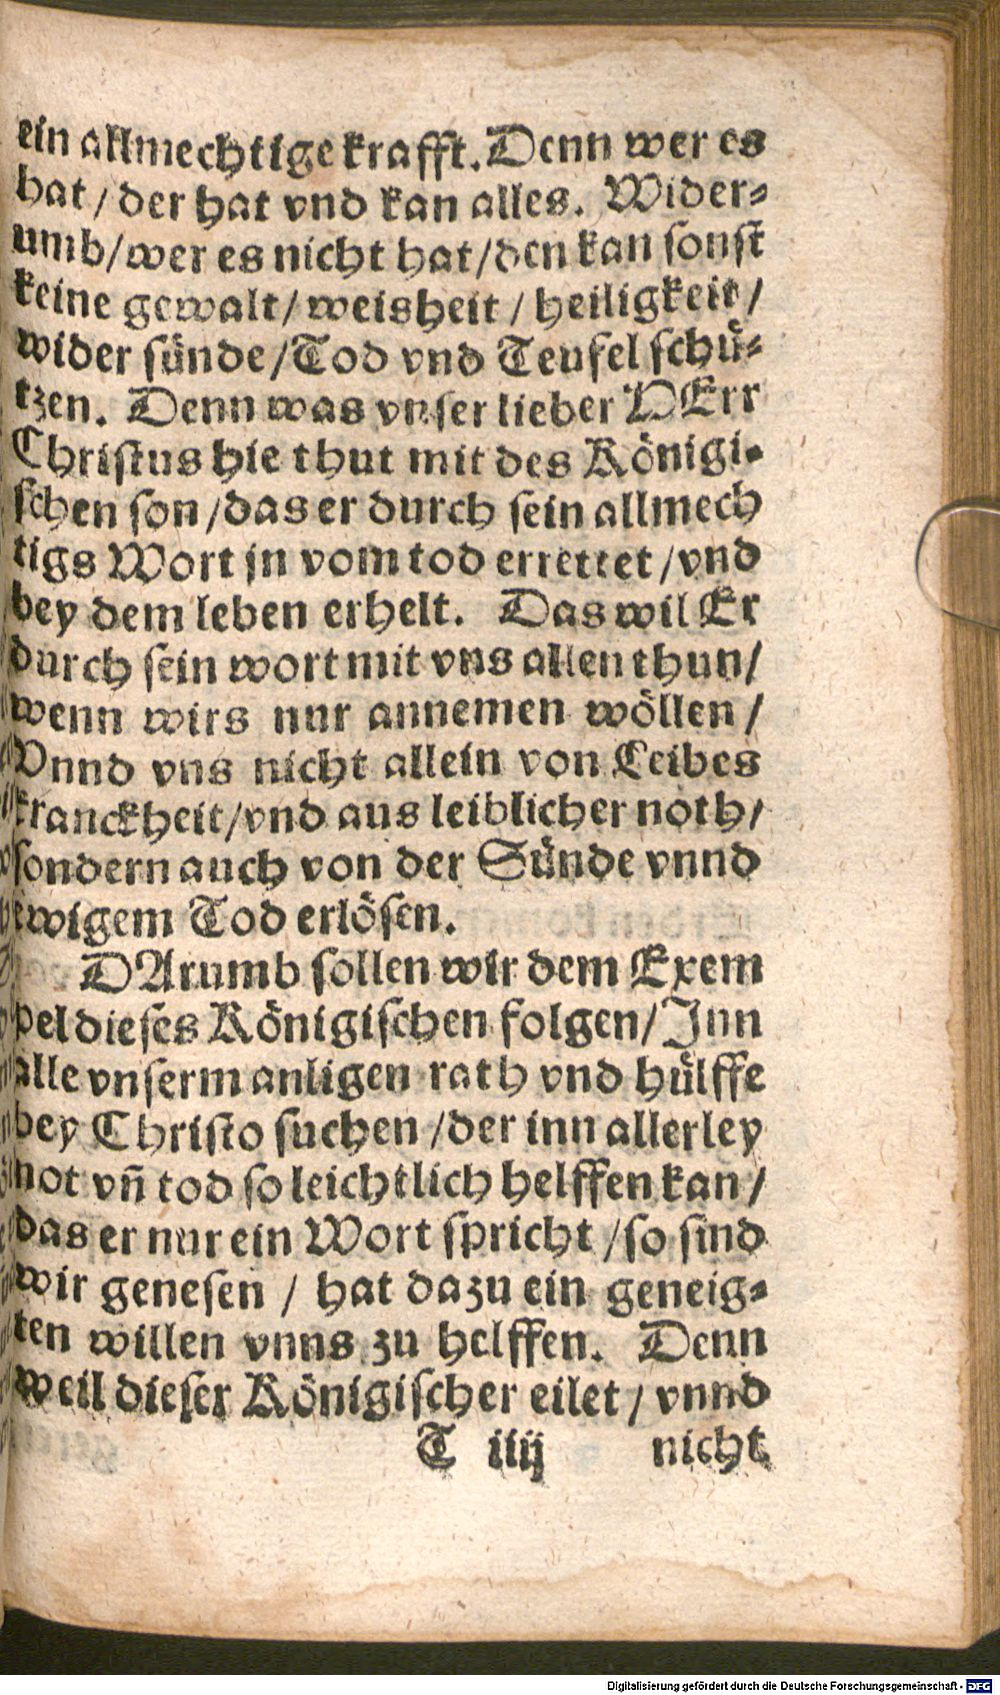 ein allmechtige krafft. Denn wer es
hat / der hat vnd kan alles. Wider⸗
umb / wer es nicht hat / den kan sonst
keine gewalt / weisheit / heiligkeit /
wider sünde / Tod vnd Teufel schü⸗
tzen. Denn was vnser lieber HErr
Christus hie thut mit des Königi⸗
schen son / das er durch sein allmech
tigs Wort jn vom tod errettet / vnd
bey dem leben erhelt. Das wil Er
durch sein wort mit vns allen thun /
wenn wirs nur annemen wöllen /
Vnnd vns nicht allein von Leibes
kranckheit / vnd aus leiblicher noth /
sondern auch von der Sünde vnnd
ewigem Tod erlösen.
DArumb sollen wir dem Exem
pel dieses Königischen folgen / Inn
alle vnserm anligen rath vnd hülffe
bey Christo suchen / der inn allerley
not vñ tod so leichtlich helffen kan /
das er nur ein Wort spricht / so sind
wir genesen / hat dazu ein geneig⸗
ten willen vnns zu helffen. Denn
weil dieser Königischer eilet / vnnd
T iiij nicht
Digitalisierung gefördert durch die Deutsche Forschungsgemeinschaft - DFG